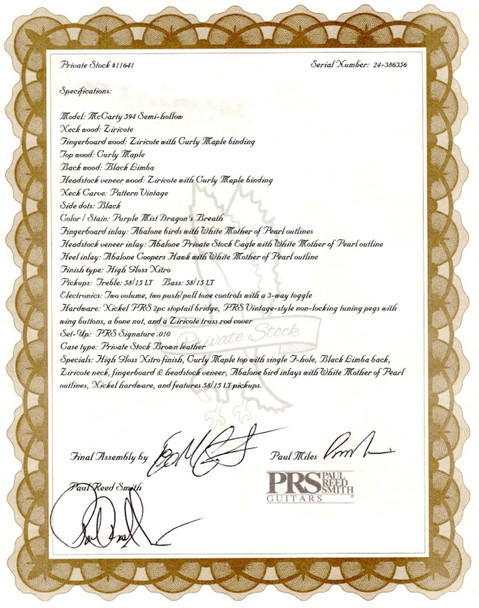 Private Stock #11641
Serial Number: 24-386356
Specifications:
Model: McCarty 594 Semi-hollow
Neck wood: Ziricote
Fingerboard wood: Ziricote with Curly Maple binding
Top wood: Curly Maple
Back wood: Black Limba
Headstock veneer wood: Ziricote with Curly Maple binding
Neck Carve: Pattern Vintage
Side dots: Black
Color / Stain: Purple Mist Dragon's Breath
Fingerboard inlay: Abalone birds with White Mother of Pearl outlines
Headstock veneer inlay: Abalone Private Stock Eagle with White Mother of Pearl outline
Heel inlay: Abalone Coopers Hawk with White Mother of Pearl outline
Finish type: High Gloss Nitro
Pickups: Treble: 58/15 LT Bass: 58/15 LT
Electronics: Two volume, two push/pull tone controls with a 3-way toggle
Hardware: Nickel PRS 2pc stoptail bridge, PRS Vintage-style non-locking tuning pegs with
wing buttons, a bone nut, and a Ziricote truss rod cover
Set-Up: PRS Signature .010
Case type: Private Stock Brown leather
Specials: High Gloss Nitro finish, Curly Maple top with single F-hole, Black Limba back,
Ziricote neck, fingerboard & headstock veneer, Abalone bird inlays with White Mother of Pearl
outlines, Nickel hardware, and features 58/15 LT pickups.
Private Stock
Final Assembly by
Paul Miles
Paul Reed Smith
PRS PAUL
REED
SMITH
GUITARS